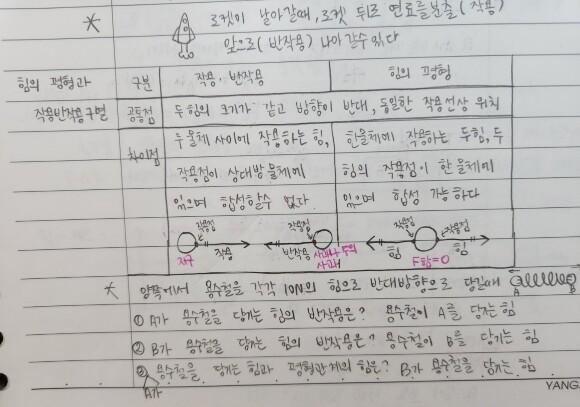 * 로켓이 날아갈때, 로켓 뒤로 연료를분출 (작용)
앞으로(반작용) 나아갈수있다
힘의 평형과 구분 작용·반작용 힘의 평형
작용반작용구별 공통점 두힘의 크기가 같고 방향이 반대, 동일한 작용선상 위치
차이점 두물체 사이에 작용하는 힘, 한물체에 작용하는 두힘, 두
작용점이 상대방 물체에 힘의 작용점이 한물체에
있으며 합성할수 없다. 있으며 합성 가능하다
작용점 작용점 작용점 작용점
지구 작용 반작용 힘 힘
F합=0
* 양쪽에서 용수철을 각각 10N의 힘으로 반대방향으로 당길때 A B
① A가 용수철을 당기는 힘의 반작용은? 용수철이 A를 당기는 힘
② B가 용수철을 당기는 힘의 반작용은? 용수철이 B를 당기는 힘
③ 용수철을 당기는 힘과 평형관계의 힘은? B가 용수철을 당기는 힘
A가
YANG